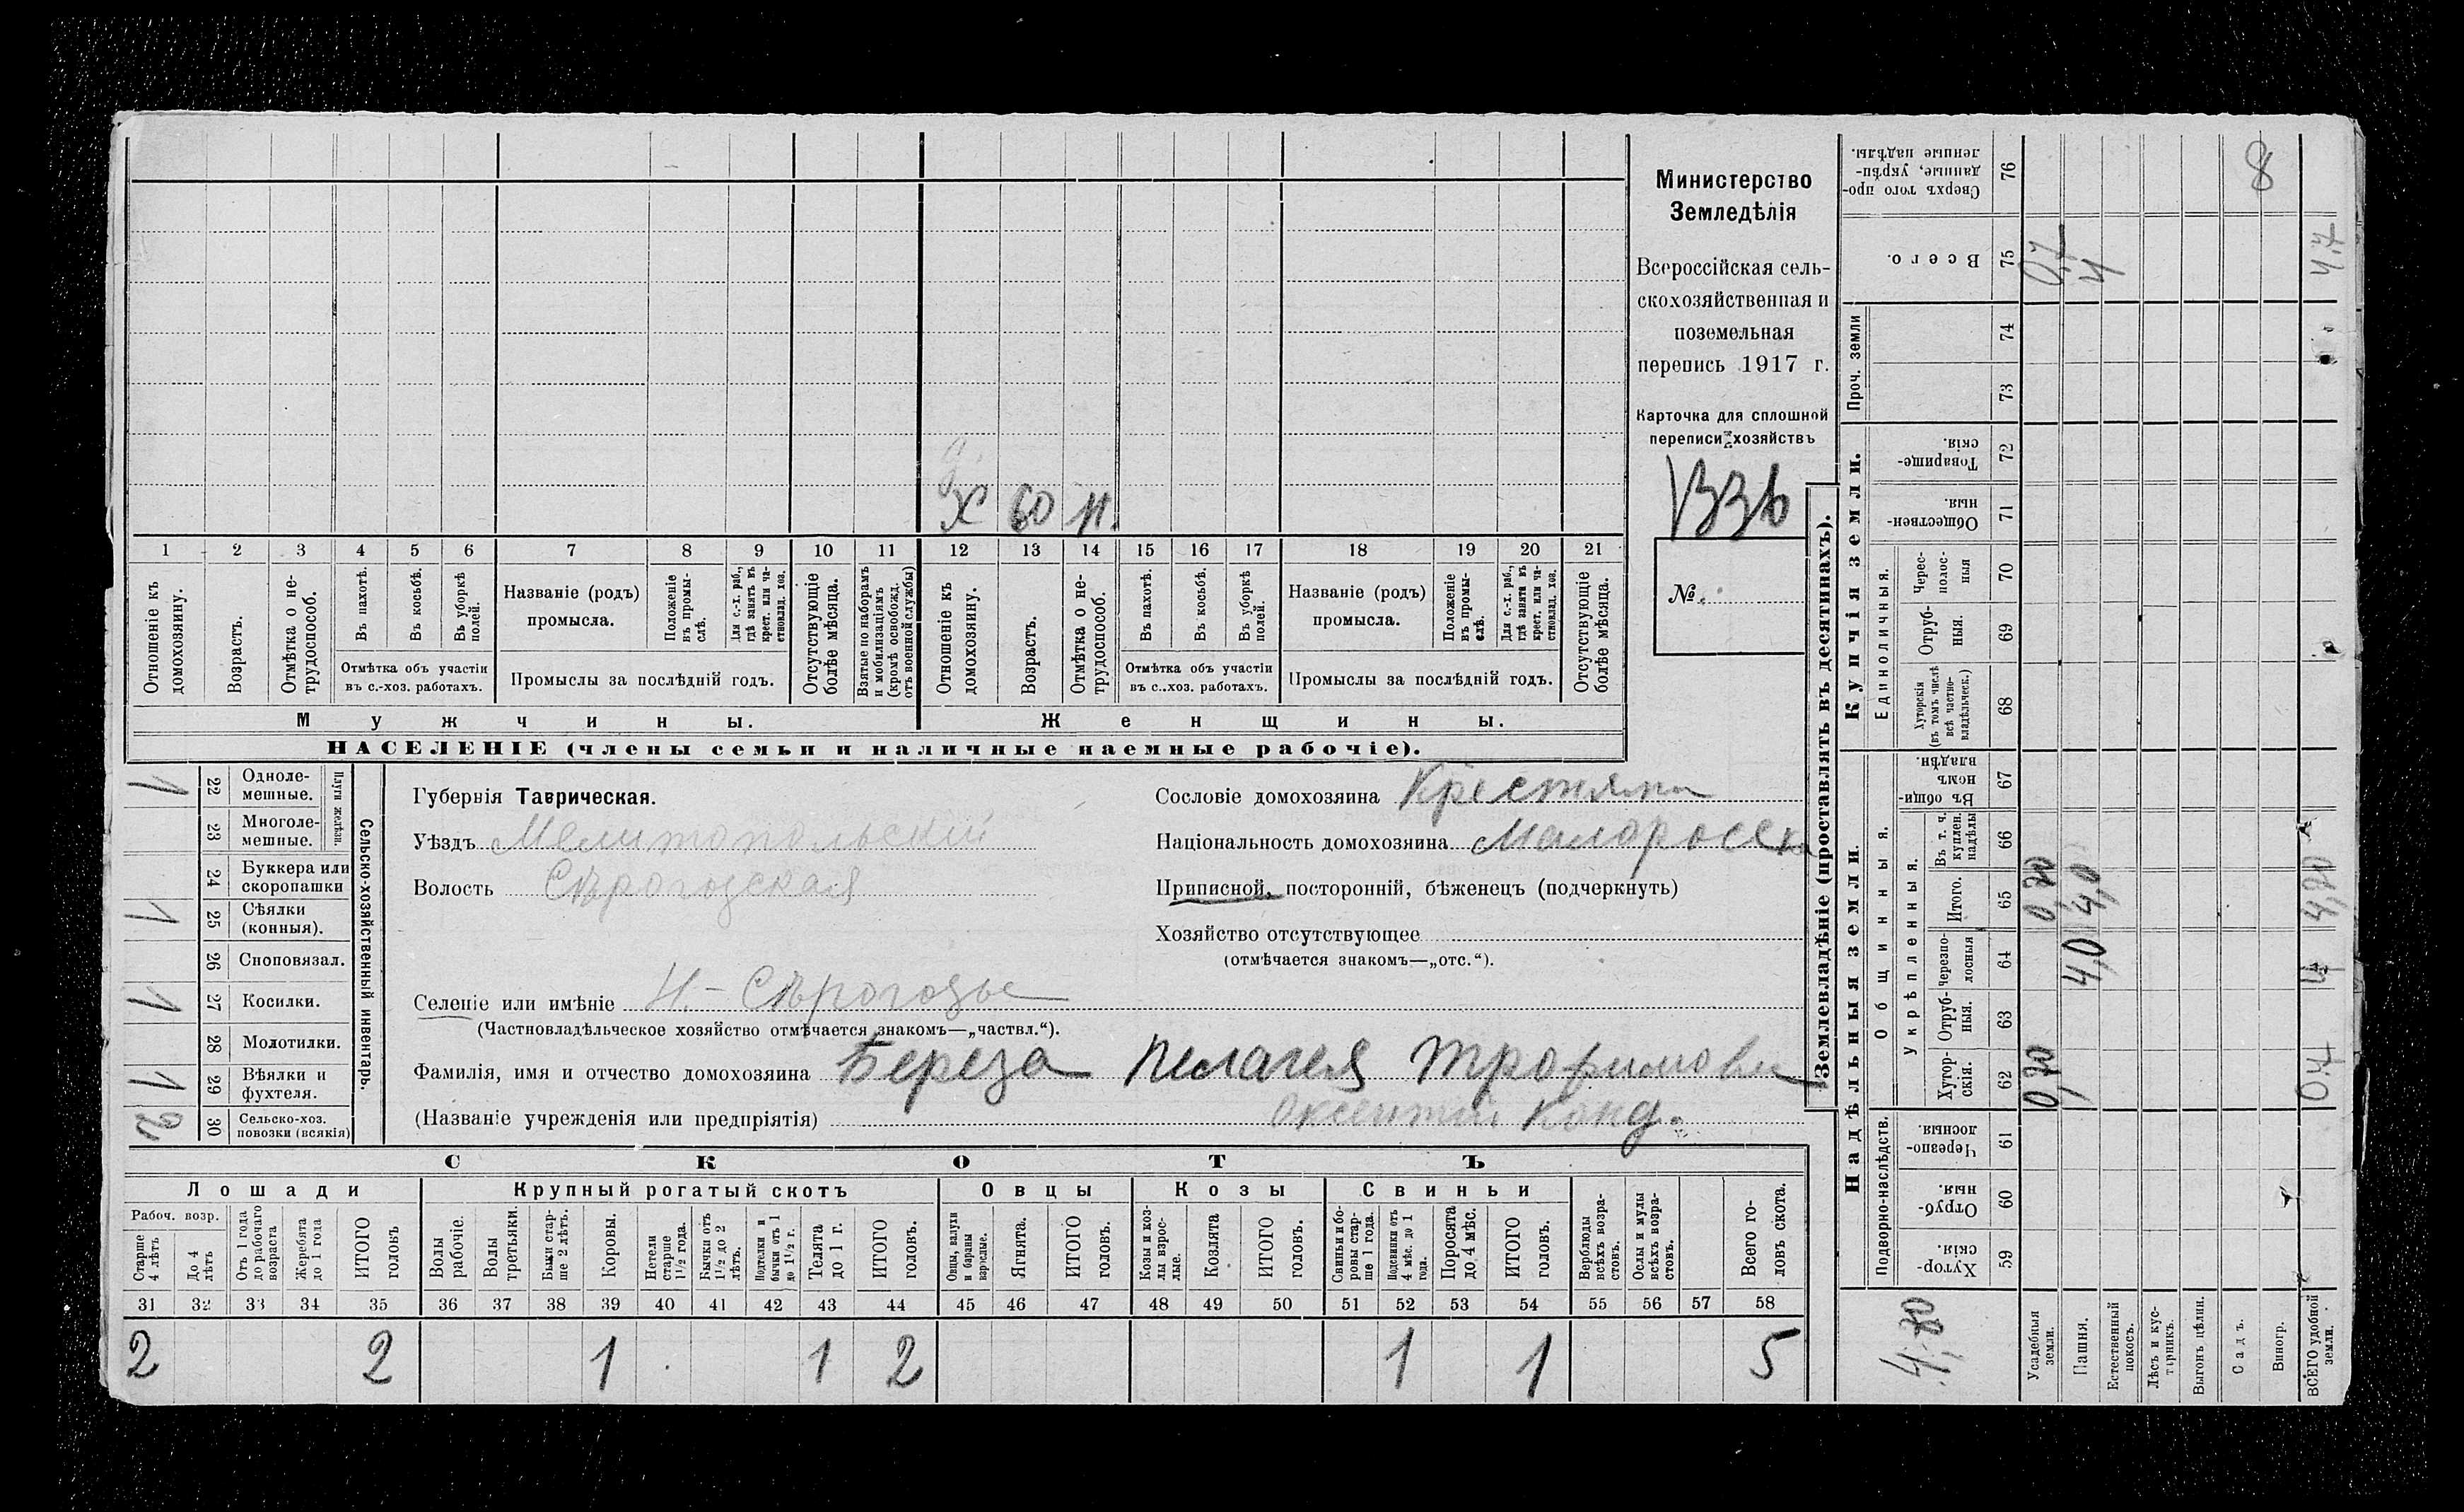 Министерство
Земледѣлія
Всероссійская сель-
скохозяйственная и
поземельная
перепись 1917 г.
Карточка для сплошной
переписи хозяйствъ
№
Х 60 н.
1 2 3 4 5 6 7 8 9 10 11 12 13 14 15 16 17 18 19 20 21
Отношеніе къ домохозяину.
Возрастъ.
Отмѣтка о не-трудоспособ.
Въ пахотѣ.
Въ косьбѣ.
Въ уборкѣ полей.
Отмѣтка объ участіи
въ с.-хоз. работахъ.
Названіе (родъ)
промысла.
Положеніе въ промы-слѣ.
Для с.-х. раб., гдѣ занятъ въ крест. или ча-стновлад. хоз.
Промыслы за послѣдній годъ.
Отсутствующіе болѣе мѣсяца.
Взятые по наборамъ и мобилизаціямъ (кромѣ освобожд. отъ военной службы)
Отношеніе къ домохозяину.
Возрастъ.
Отмѣтка о не-трудоспособ.
Въ пахотѣ.
Въ косьбѣ.
Въ уборкѣ полей.
Отмѣтка объ участіи
въ с..хоз. работахъ.
Названіе (родъ)
промысла.
Положеніе въ промы-слѣ.
Для с.-х. раб., гдѣ заняты въ крест. или ча-стновлад. хоз.
Промыслы за послѣдній годъ.
Отсутствующіе болѣе мѣсяца.
Мужчины.
Женщины.
НАСЕЛЕНІЕ (члены семьи и наличные наемные рабочіе).
Сельско-хозяйственный инвентарь.
Плуги желѣзн.
1 22 Одноле-мешные.
23 Многоле-мешные.
24 Буккера или скоропашки
1 25 Сѣялки (конныя).
26 Сноповязал.
1 27 Косилки.
28 Молотилки.
1 29 Вѣялки и фухтеля.
2 30 Сельско-хоз. повозки (всякія)
Губернія Таврическая.
Уѣздъ Мелитопольский
Волость Сѣрогозская
Селеніе или имѣніе Н.-Сѣрогозы
(Частновладѣльческое хозяйство отмѣчается знакомъ—„частвл.“).
Фамилія, имя и отчество домохозяина Береза Пелагея Трофимовна
(Названіе учрежденія или предпріятія) Оксентий Конд.
Сословіе домохозяина Крестянин
Національность домохозяина Малоросска
Приписной, посторонній, бѣженецъ (подчеркнуть)
Хозяйство отсутствующее
(отмѣчается знакомъ—„отс.“).
СКОТЪ
Лошади
Крупный рогатый скотъ
Овцы
Козы
Свиньи
Рабоч. возр.
Старше 4 лѣтъ
До 4 лѣтъ
Отъ 1 года до рабочаго возраста
Жеребята до 1 года
ИТОГО головъ
Волы рабочіе.
Волы третьяки.
Быки стар-ше 2 лѣтъ.
Коровы.
Нетели старше 1½ года.
Бычки отъ 1½ до 2 лѣтъ.
Подтелки и бычки отъ 1 до 1½ г.
Телята до 1 г.
ИТОГО головъ.
Овцы, валухи и бараны взрослые.
Ягнята.
ИТОГО головъ.
Козы и коз-лы взрос-лые.
Козлята
ИТОГО головъ.
Свиньи и бо-ровы стар-ше 1 года.
Подсвинки отъ 4 мѣс. до 1 года.
Поросята до 4 мѣс.
ИТОГО головъ.
Верблюды всѣхъ возра-стовъ.
Ослы и мулы всѣхъ возра-стовъ.
Всего го-ловъ скота.
31 32 33 34 35 36 37 38 39 40 41 42 43 44 45 46 47 48 49 50 51 52 53 54 55 56 57 58
2 2 1 1 2 1 1 5
Землевладѣніе (проставлять въ десятинахъ).
Надѣльныя земли.
Купчія земли.
Проч. земли
Подворно-наслѣдств.
Общинныя.
Укрѣпленныя.
Единоличныя.
Хутор-скія. 59
Отруб-ныя. 60
Черезпо-лосныя. 61
Хутор-скія. 62
Отруб-ныя. 63
Черезпо-лосныя 64
Итого. 65
Въ т. ч. куплен. надѣлы 66
Въ общи-номъ владѣн. 67
Хуторскія (въ томъ числѣ всѣ частно-владѣльческ.) 68
Отруб-ныя. 69
Черес-полос-ныя 70
Обществен-ныя. 71
Товарище-скія. 72
73
74
Всего. 75
Сверхъ того про-данные, укрѣп-ленные надѣлы. 76
Усадебныя земли.
0,70 0,70 0,7
Пашня.
4,0 4,0 4
Естественный покосъ.
Лѣсъ и кус-тарникъ.
Выгонъ цѣлин.
Садъ.
Виногр.
ВСЕГО удобной земли.
4,70 4,7
4,70
8